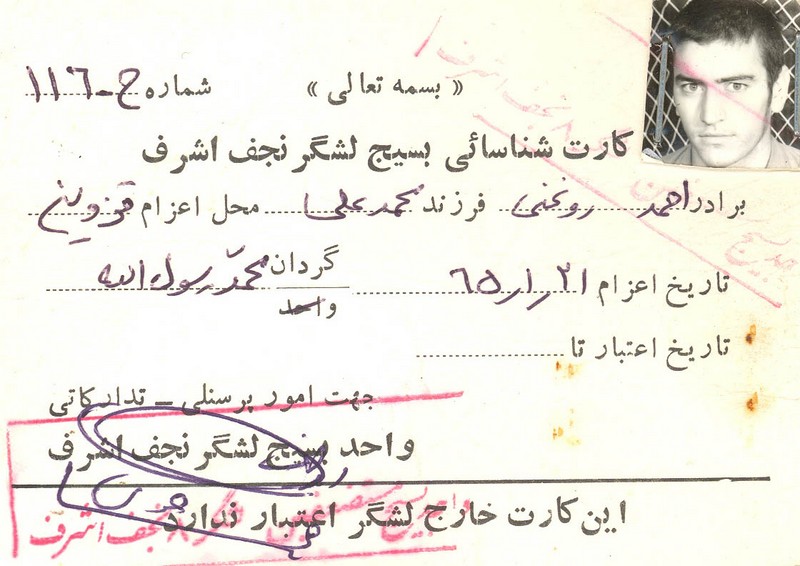 « بسمه تعالی » شماره ح-۱۱۶
کارت شناسائی بسیج لشگر نجف اشرف
برادر احمد روغنی فرزند محمدعلی محل اعزام قزوین
تاریخ اعزام ۲۱ر۱ر۶۵ گردان محمّد رسول الله
واحد
تاریخ اعتبار تا
جهت امور پرسنلی ـ تدارکاتی
واحد بسیج لشگر نجف اشرف
این کارت خارج لشگر اعتبار ندارد
نجف اشرف